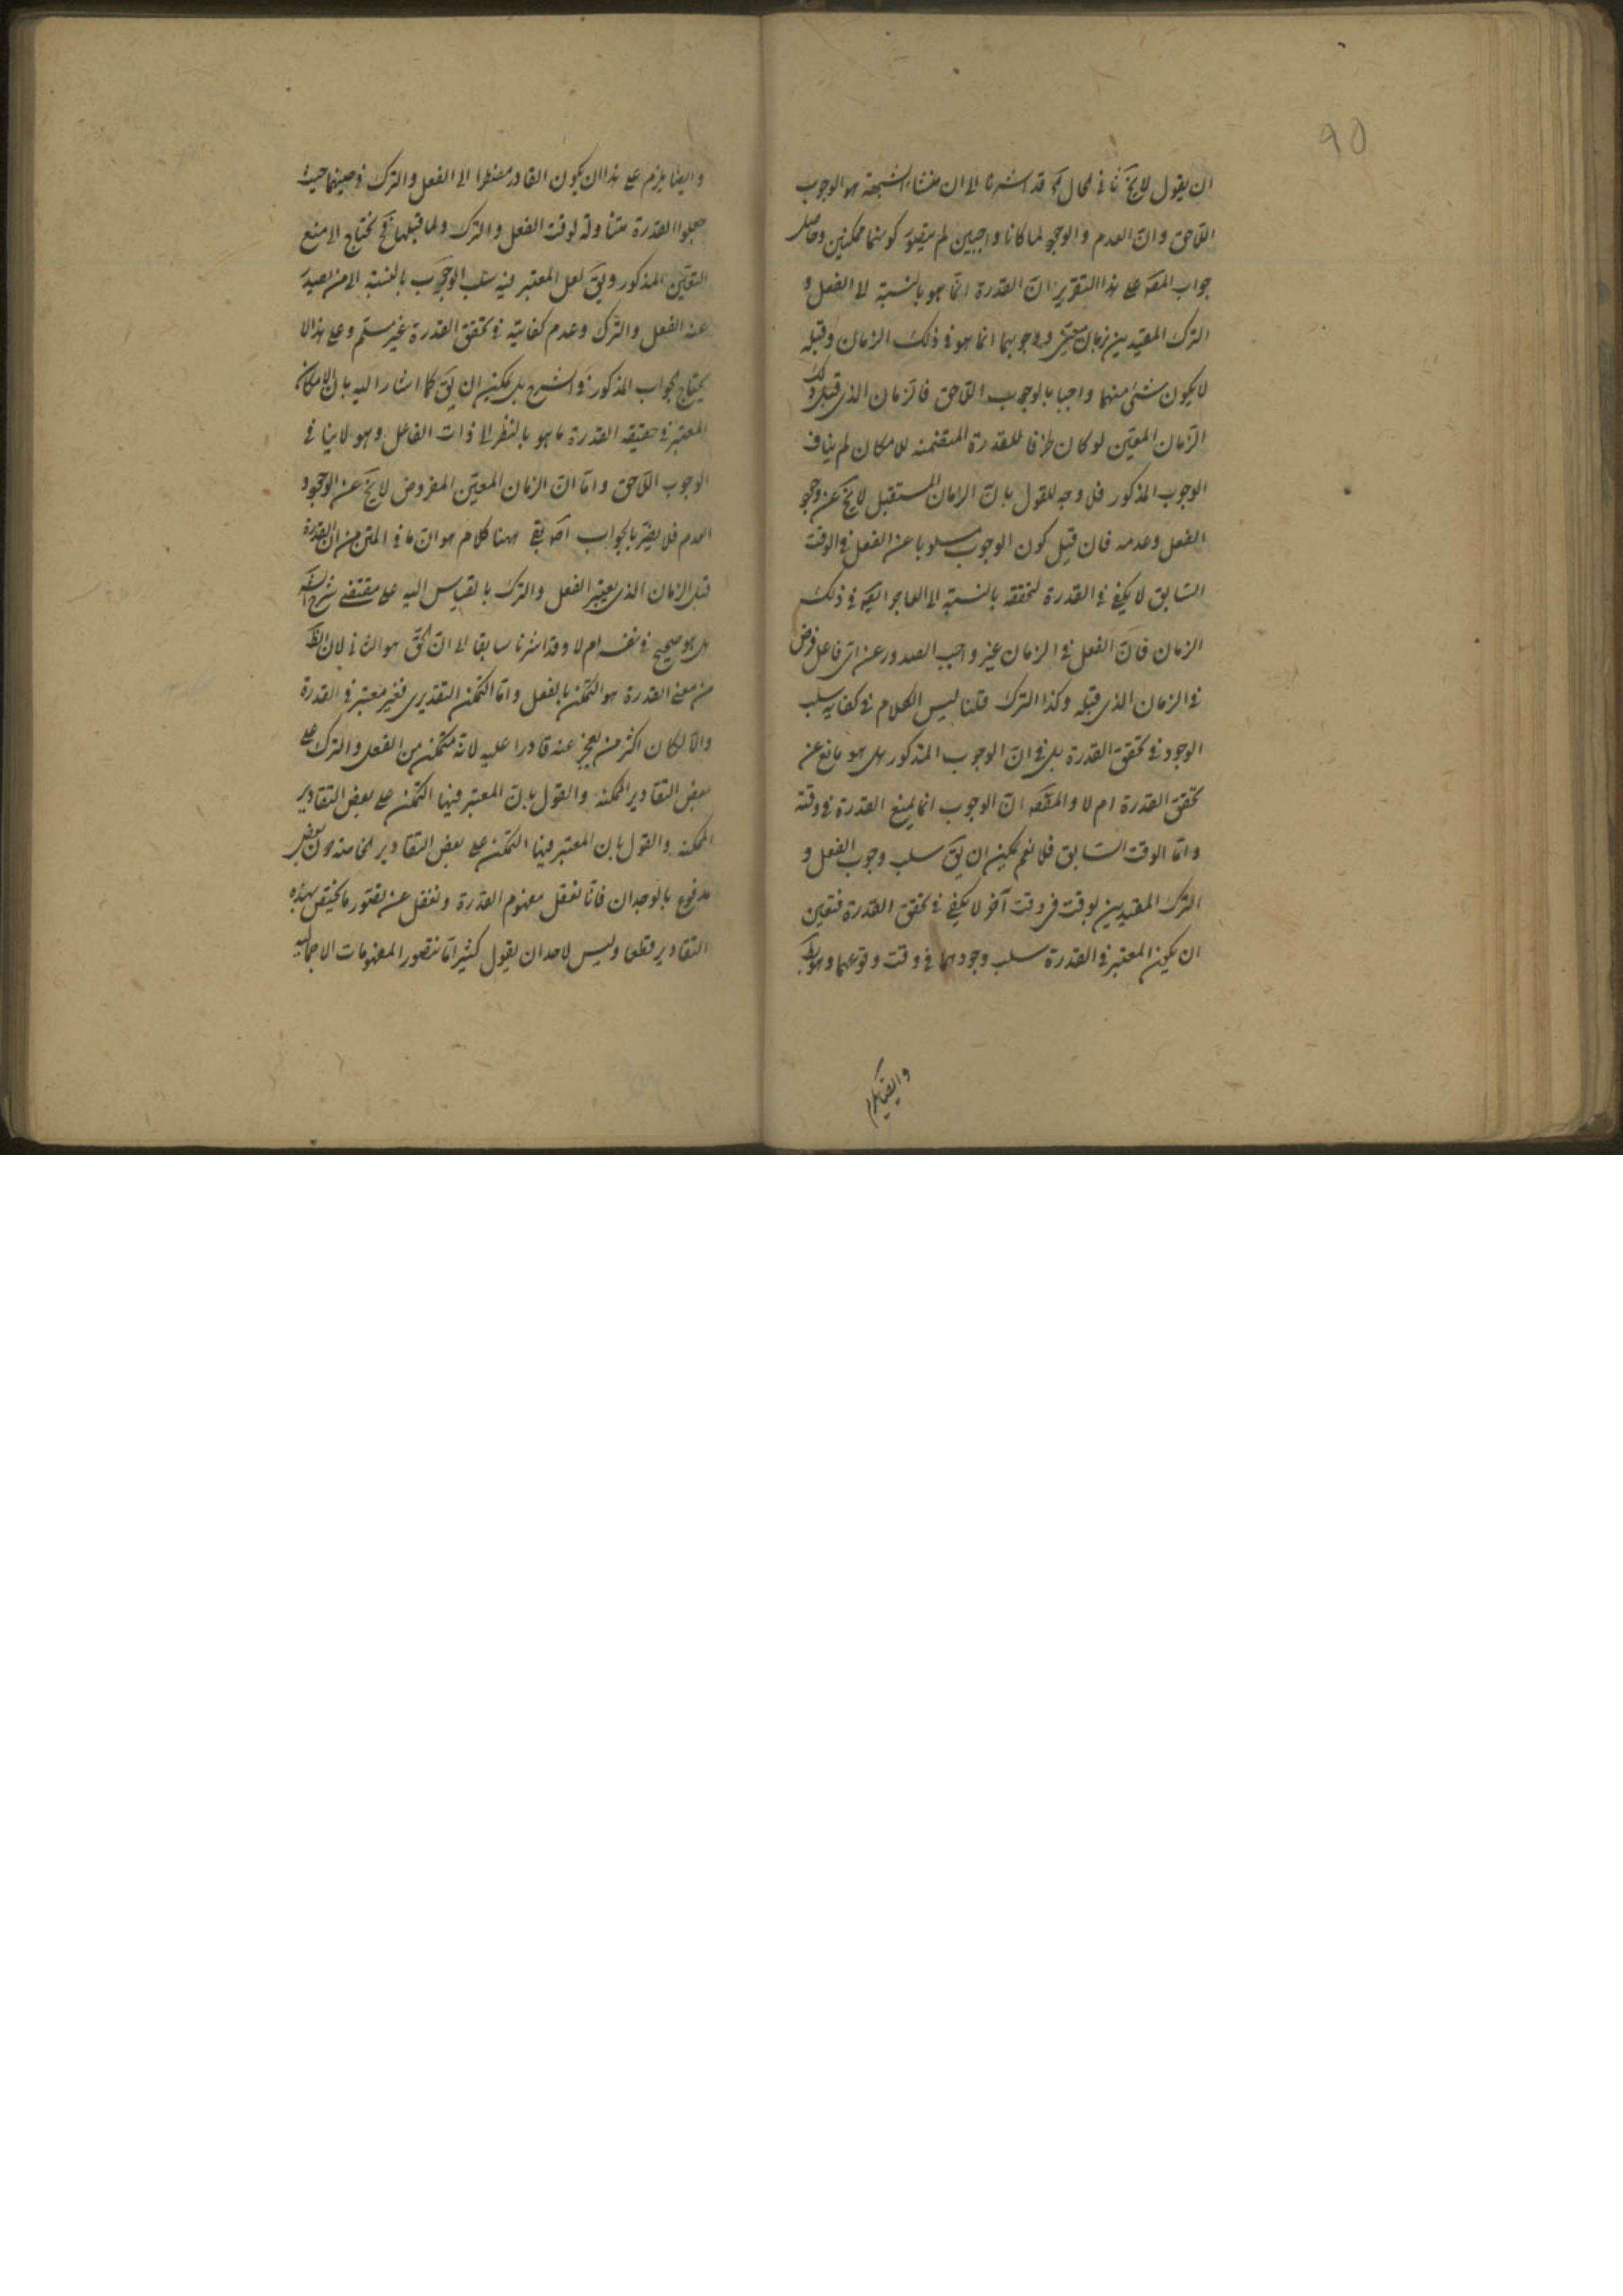 ان يقول لا يخ ثانى الحال لا قد اشرنا الى ان منشاء الشبهة هو الوجوب
اللاحق وان العدم والوجود لما كانا واجبين لم يتصور كونهما ممكنين وحاصل
جواب المص على هذا التقرير ان القدرة انما هو بالنسبة الى الفعل و
الترك المقيدين بزمان معين ووجوبهما انما هو فى ذلك الزمان وقبله
لا يكون شئ منهما واجبا بالوجوب اللاحق فالزمان الذى قبل ذلك
الزمان المعين لو كان ظرفا للقدرة المتضمنة للامكان لم يناف
الوجوب المذكور فلا وجه للقول بان الزمان المستقبل لا يخ عن وجود
الفعل وعدمه فان قيل كون الوجوب مسلوبا عن الفعل فى الوقت
السابق لا يكفى فى القدرة لتحققه بالنسبة الى العاجز ايض فى ذلك
الزمان فان الفعل فى الزمان غير واجب الصدور عن اى فاعل فرض
فى الزمان الذى قبله وكذا الترك قلنا ليس الكلام فى كفاية سلب
الوجود فى تحقق القدرة بل فى ان الوجوب المذكور هل هو مانع عن
تحقق القدرة ام لا والمقص ان الوجوب انما يمنع القدرة فى وقته
واما الوقت السابق فلا نعم يمكن ان يق سلب وجوب الفعل و
الترك المقيدين بوقت فى وقت آخر لا يكفى فى تحقق القدرة فتعين
ان يكون المعتبر فى القدرة سلب وجودهما فى وقت وقوعهما وهو بط
وايضا يلزم
90
وايضا يلزم على هذا ان يكون القادر مضطرا الى الفعل والترك فى حينهما حيث
جعلوا القدرة متناولة لوقت الفعل والترك ولما قبلهما فح يحتاج الى منع
التعين المذكور ويق لعل المعتبر فيه سلب الوجوب بالنسبة الى من يصدر
عنه الفعل والترك وعدم كفايته فى تحقق القدرة غير مسلم وعلى هذا لا
يحتاج الجواب المذكور فى الشرح بل يمكن ان يق كما اشار اليه بان الامكان
المعتبر فى حقيقة القدرة ما هو بالنظر الى ذات الفاعل وهو لا ينافى
الوجوب اللاحق واما ان الزمان المعين المفروض لا يخ عن الوجود و
العدم فلا يضر بالجواب اص بقى ههنا كلام هو ان ما فى المتن من ان القدرة
قبل الزمان الذى يعتبر الفعل والترك بالقياس اليه على مقتضى شرح
هل هو صحيح فى نفسه ام لا وقد اشرنا سابقا الى ان الحق هو الثانى لان الظ
من معنى القدرة هو التمكن بالفعل واما التمكن التقديرى فغير معتبر فى القدرة
والا لكان اكثر من يعجز عنه قادرا عليه لانه متمكن من الفعل والترك على
بعض التقادير الممكنة والقول بان المعتبر فيها التمكن على بعض التقادير
الممكنة والقول بان المعتبر فيها التمكن على بعض التقادير الخاصة دون بعض
مدفوع بالوجدان فانا نعقل مفهوم القدرة ونغفل عن تصور ما يختص بهذه
التقادير قطعا وليس لاحد ان يقول كثيرا ما نتصور المفهومات الاجمالية